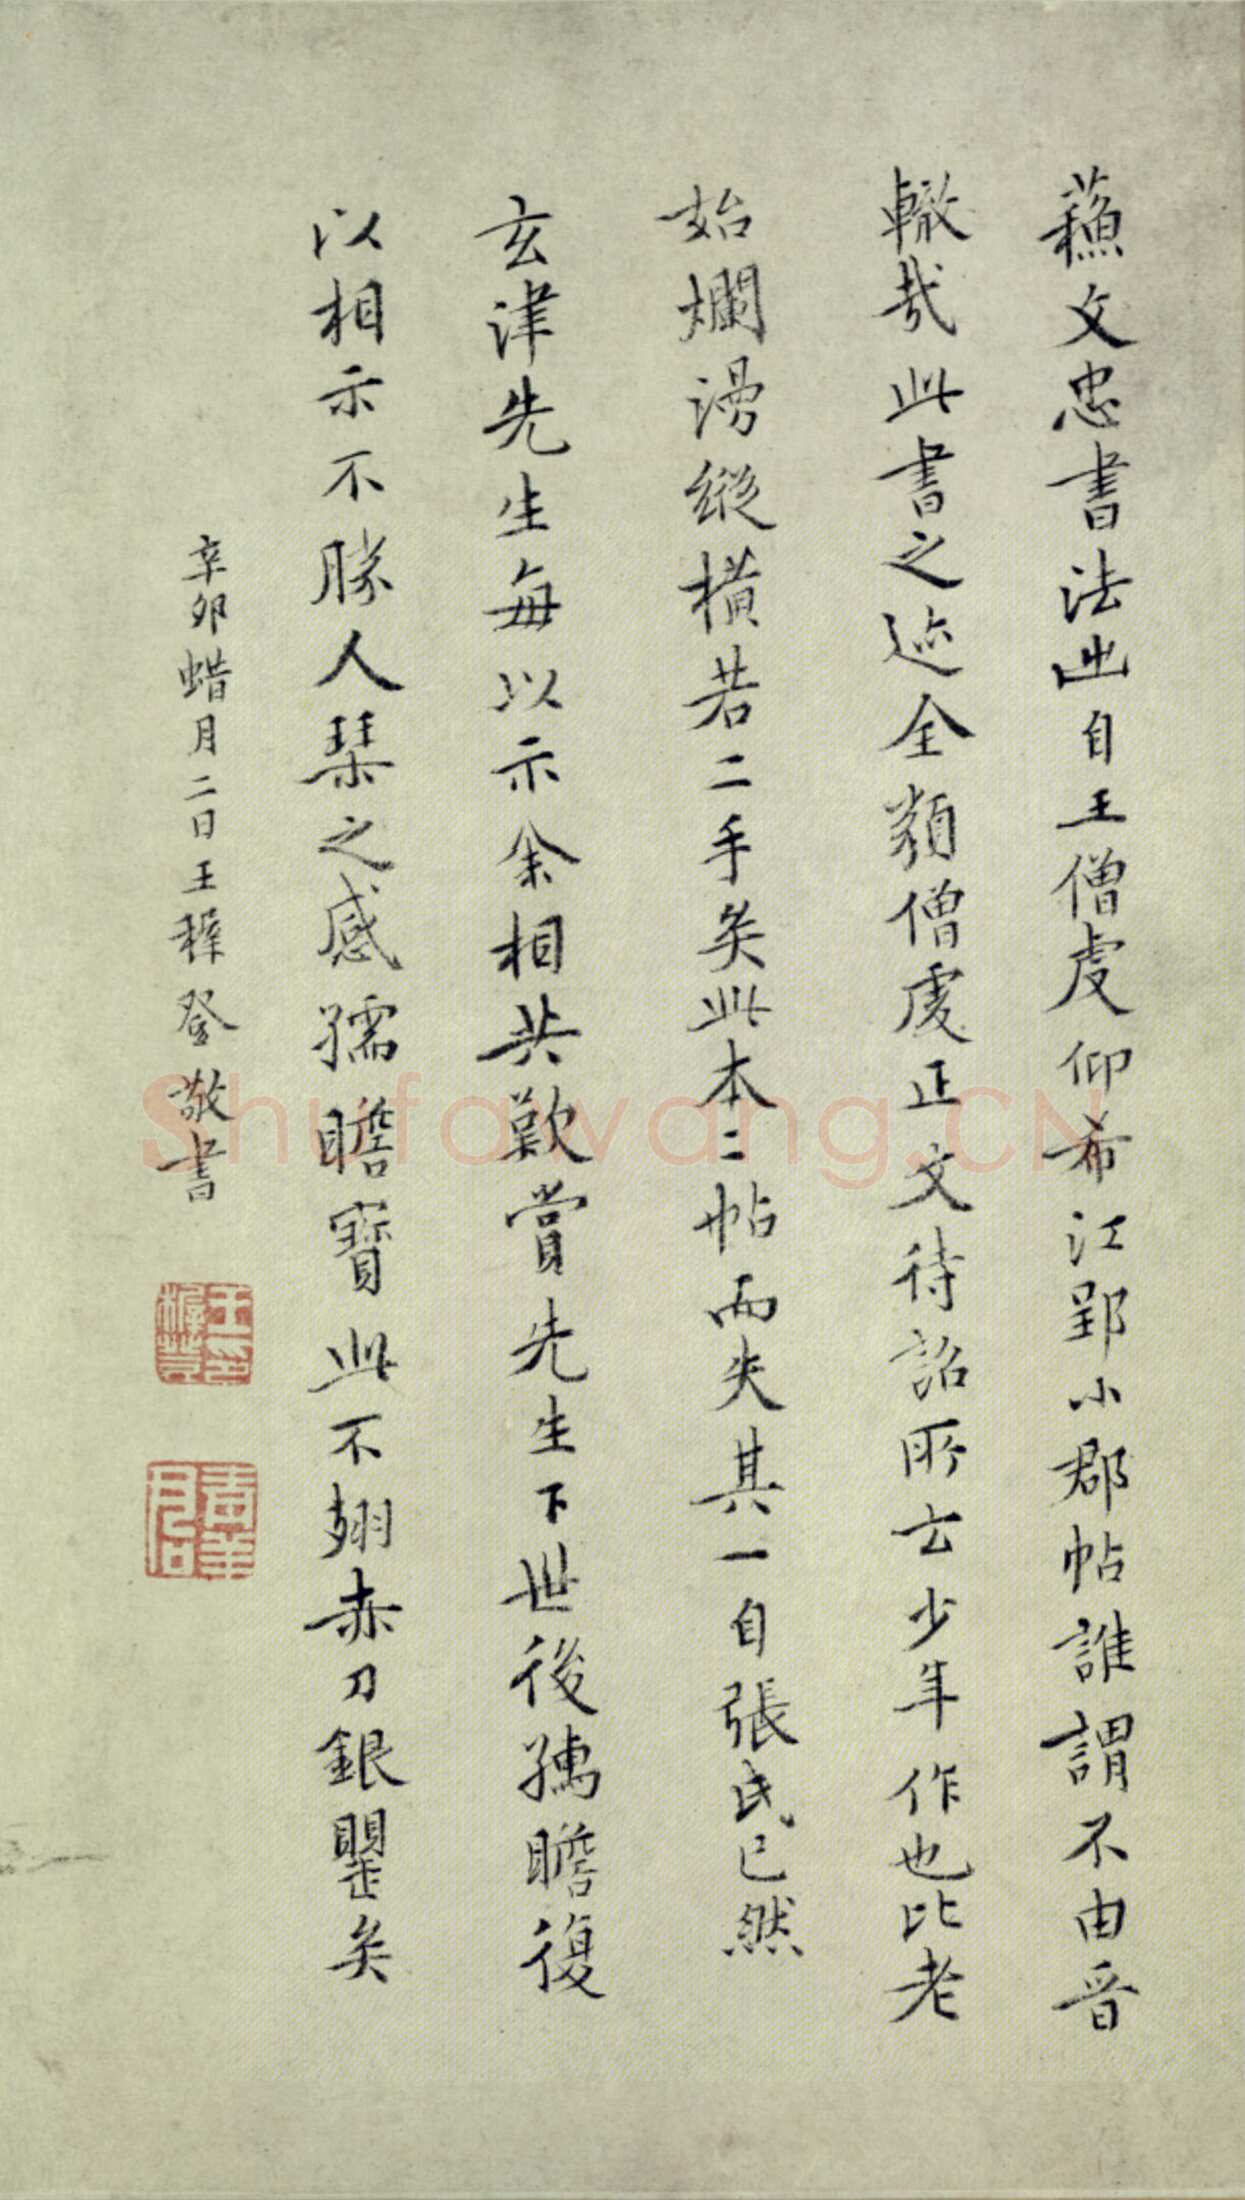 蘇文忠書法出自王僧虔仰希江郢小郡帖誰謂不由晉
轍哉此書之迹全類僧虔正文待詔所云少年作也比老
始爛漫縱橫若二手矣此本二帖而失其一自張氏已然
玄津先生每以示余相共歎賞先生下世後孺瞻復
以相示不勝人琹之感孺瞻寶此不翅赤刀銀罌矣
辛卯蜡月二日王穉登敬書
Shufawang.CN